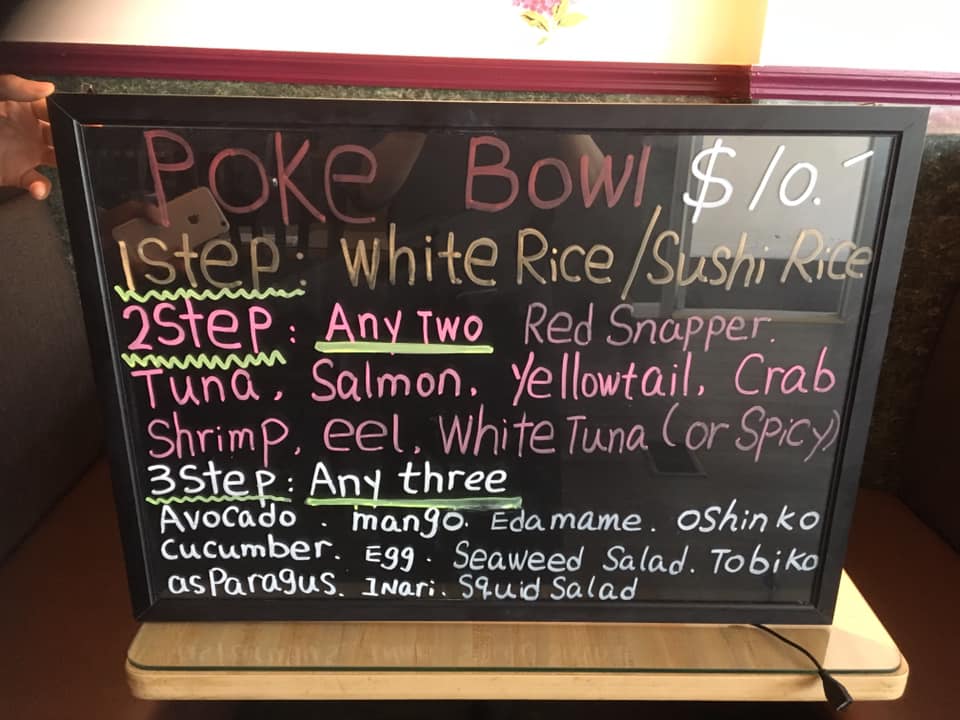 Poke Bowl $10.-
1Step: White Rice/Sushi Rice
2Step: Any Two Red Snapper.
Tuna, Salmon, Yellowtail, Crab
Shrimp, eel, White Tuna (or Spicy)
3Step: Any three
Avocado. mango. Edamame. Oshinko
Cucumber. Egg. Seaweed Salad. Tobiko
asparagus. Inari. Squid Salad